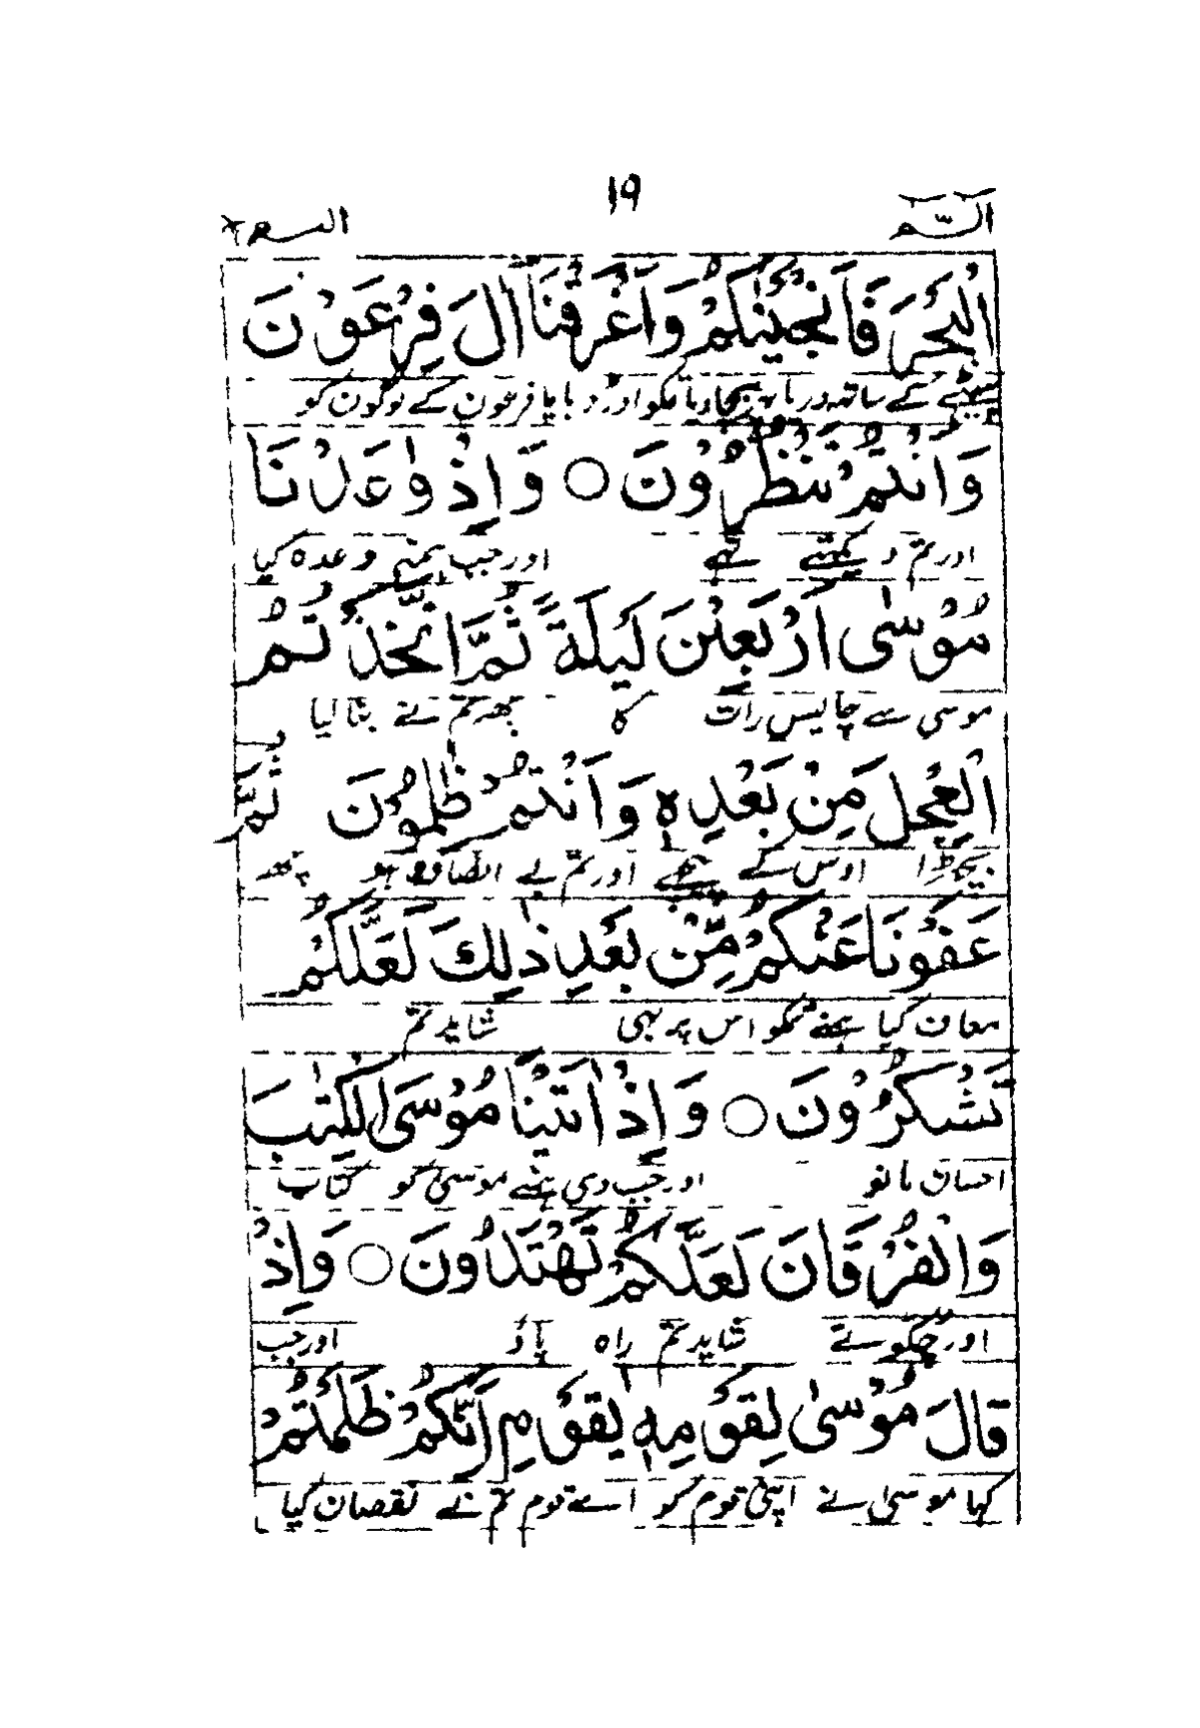 الٓمّٓ ۱۹ البقرة ۲
الْبَحْرَ فَاَنْجَيْنٰكُمْ وَاَغْرَقْنَآ اٰلَ فِرْعَوْنَ
کے ساتھ دریا پھر بچا دیا تمکو اور ڈبا یا فرعون کے لوگون کو
وَاَنْتُمْ تَنْظُرُوْنَ ○ وَاِذْ وٰعَدْنَا
اور تم دیکھتے تھے اور جب ہمنے وعدہ کیا
مُوْسٰى اَرْبَعِيْنَ لَيْلَةً ثُمَّ اتَّخَذْتُمُ
موسی سے چالیس رات کا پھر تم نے بنا لیا
الْعِجْلَ مِنْ بَعْدِهٖ وَاَنْتُمْ ظٰلِمُوْنَ ثُمَّ
بچھڑا اوس کے پیچھے اور تم بے انصاف ہو پھر
عَفَوْنَا عَنْكُمْ مِّنْ بَعْدِ ذٰلِكَ لَعَلَّكُمْ
معاف کیا ہمنے تمکو اس پر بھی شاید تم
تَشْكُرُوْنَ ○ وَاِذْ اٰتَيْنَا مُوْسَى الْكِتٰبَ
احسان مانو اور جب دی ہمنے موسیٰ کو کتاب
وَالْفُرْقَانَ لَعَلَّكُمْ تَهْتَدُوْنَ ○ وَاِذْ
اور چکوتے شاید تم راہ پاؤ اور جب
قَالَ مُوْسٰى لِقَوْمِهٖ يٰقَوْمِ اِنَّكُمْ ظَلَمْتُمْ
کہا موسیٰ نے اپنی قوم کو اے قوم تم نے نقصان کیا